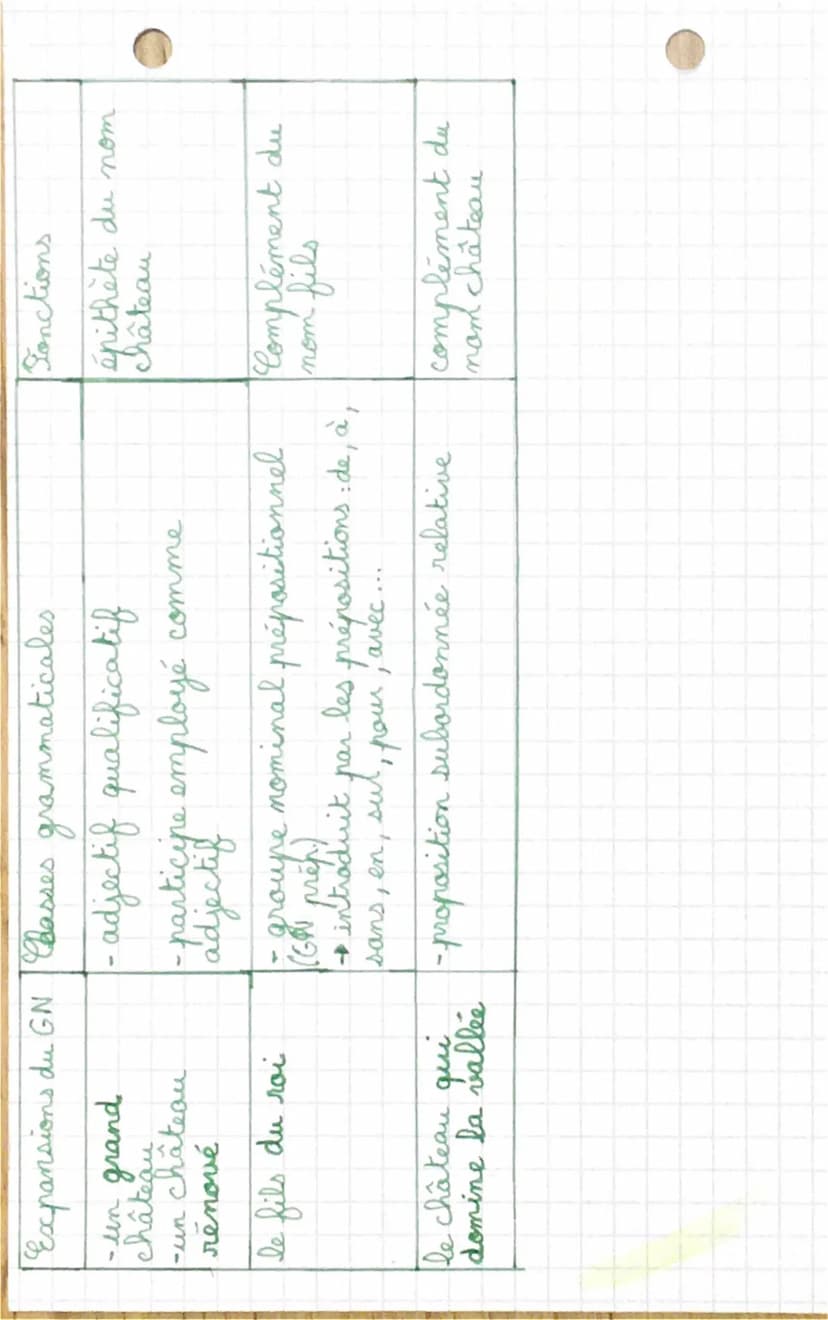 Expansions du GN
Classes grammaticales
Fonctions
-un grand
château
-un château
rénové
- adjectif qualificatif
- participe employé comme
adjectif
épithète du nom
château
le fils du roi
- groupe nominal prépositionnel
(GN prép)
→ introduit par les prépositions : de, à,
sans, en, sur, pour, avec...
Complément du
nom fils
le château qui
domine la vallée
-proposition subordonnée relative
complément du
nom château